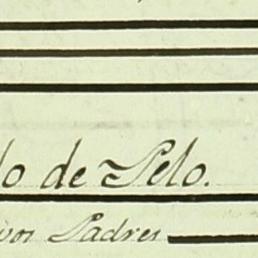 lo de Pelo.
vos Padres